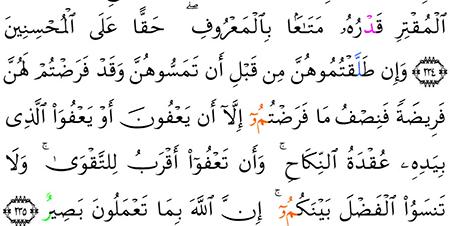 اَ۬لْمُقْتِرِ قَدْرُهُۥ مَتَٰعَۢا بِالْمَعْرُوفِۖ حَقًّا عَلَى اَ۬لْمُحْسِنِينَ
٢٣٤ وَإِن طَلَّقْتُمُوهُنَّ مِن قَبْلِ أَن تَمَسُّوهُنَّ وَقَدْ فَرَضْتُمْ لَهُنَّ
فَرِيضَةٗ فَنِصْفُ مَا فَرَضْتُمُۥٓ إِلَّآ أَن يَعْفُونَ أَوْ يَعْفُوَاْ اَ۬لَّذِي
بِيَدِهِۦ عُقْدَةُ اُ۬لنِّكَاحِۚ وَأَن تَعْفُوٓاْ أَقْرَبُ لِلتَّقْوَىٰۚ وَلَا
تَنسَوُاْ اُ۬لْفَضْلَ بَيْنَكُمُۥٓۚ إِنَّ اَ۬للَّهَ بِمَا تَعْمَلُونَ بَصِيرٌ ٢٣٥